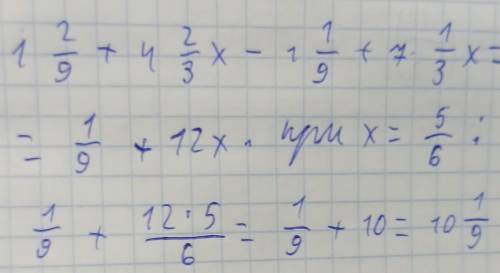 1 2/9 + 4 2/3 x - 1 1/9 + 7 · 1/3 x =
= 1/9 + 12x. при x = 5/6 :
1/9 + 12·5/6 = 1/9 + 10 = 10 1/9